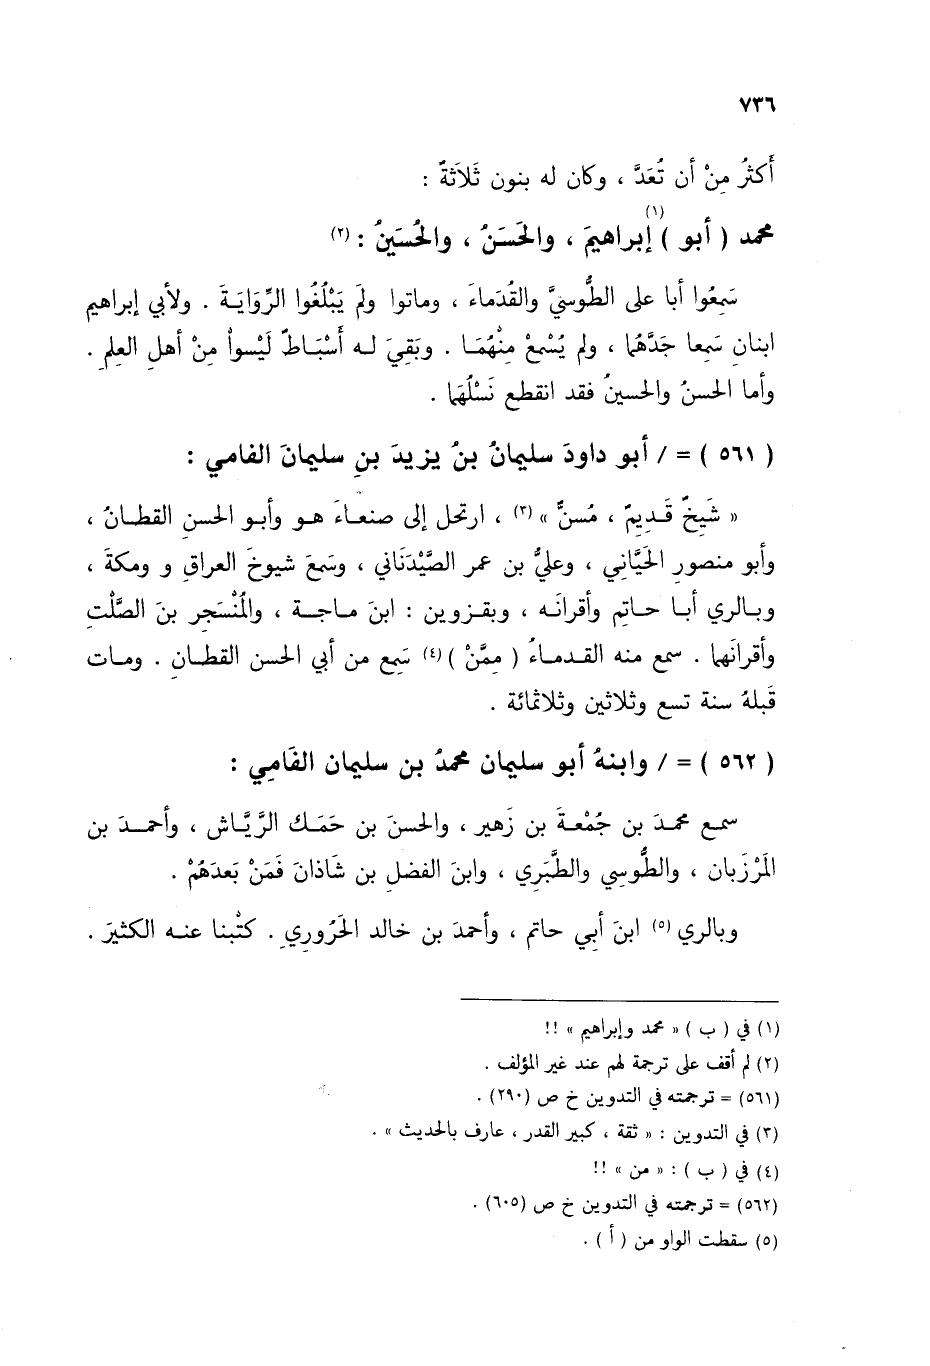 ٧٣٦
أَكثرُ مِنْ أن تُعَدَّ ، وكان له بنون ثَلاَثةٌ :
محمد ( أبو ) (١) إبراهيمَ ، والحَسَنُ ، والحُسَينُ : (٢)
سَمِعُوا أبا على الطُّوسيَّ والقُدَماءَ ، وماتوا ولَم يَبْلُغُوا الرِّوَايَةَ . ولأبي إبراهيم
ابنانِ سَمِعا جَدَّهُما ، ولم يُسْمَعْ مِنْهُمَا . وبَقِيَ له أَسْبَاطٌ لَيْسواْ مِنْ أهلِ العِلمِ .
وأما الحسنُ والحسينُ فقد انقطع نَسْلُهَما .
( ٥٦١ ) = / أبو داودَ سليمانُ بنُ يزيدَ بنِ سليمانَ الفامي :
« شَيخٌ قَديمٌ ، مُسنٌّ » (٣) ، ارتحل إلى صنعاءَ هو وأبو الحسنِ القطانُ ،
وأبو منصورِ الحَيَّاني ، وعليُّ بن عمر الصَّيْدَنَاني ، وسَمعَ شيوخَ العراقِ و ومكةَ ،
وبالري أبا حاتمٍ وأقرانَه ، وبقزوين : ابنَ ماجة ، والمُنْسَجرِ بنَ الصَّلْتِ
وأقرانَهما . سمع منه القدماءُ ( ممَّنْ ) (٤) سَمِع من أبي الحسن القطانِ . ومات
قَبلهُ سنة تسع وثلاثين وثلاثمائة .
( ٥٦٢ ) = / وابنهُ أبو سليمان محمدُ بن سليمان الفَامِي :
سمع محمدَ بن جُمْعةَ بن زَهير ، والحسنَ بن حَمَك الرَّيَّاش ، وأحمدَ بن
المَرْزَبان ، والطُّوسي والطَّبَري ، وابنَ الفضل بن شَاذانَ فَمَنْ بَعدَهُمْ .
وبالري (٥) ابنَ أبي حاتم ، وأحمدَ بن خالد الحَرُوري . كتْبنا عنه الكثيرَ .
(١) في ( ب ) « محمد وإبراهيم » !!
(٢) لم أقف على ترجمة لهم عند غير المؤلف .
(٥٦١) = ترجمته في التدوين خ ص (٢٩٠) .
(٣) في التدوين : « ثقة ، كبير القدر ، عارف بالحديث » .
(٤) في ( ب ) : « من » !!
(٥٦٢) = ترجمته في التدوين خ ص (٦٠٥) .
(٥) سقطت الواو من ( أ ) .